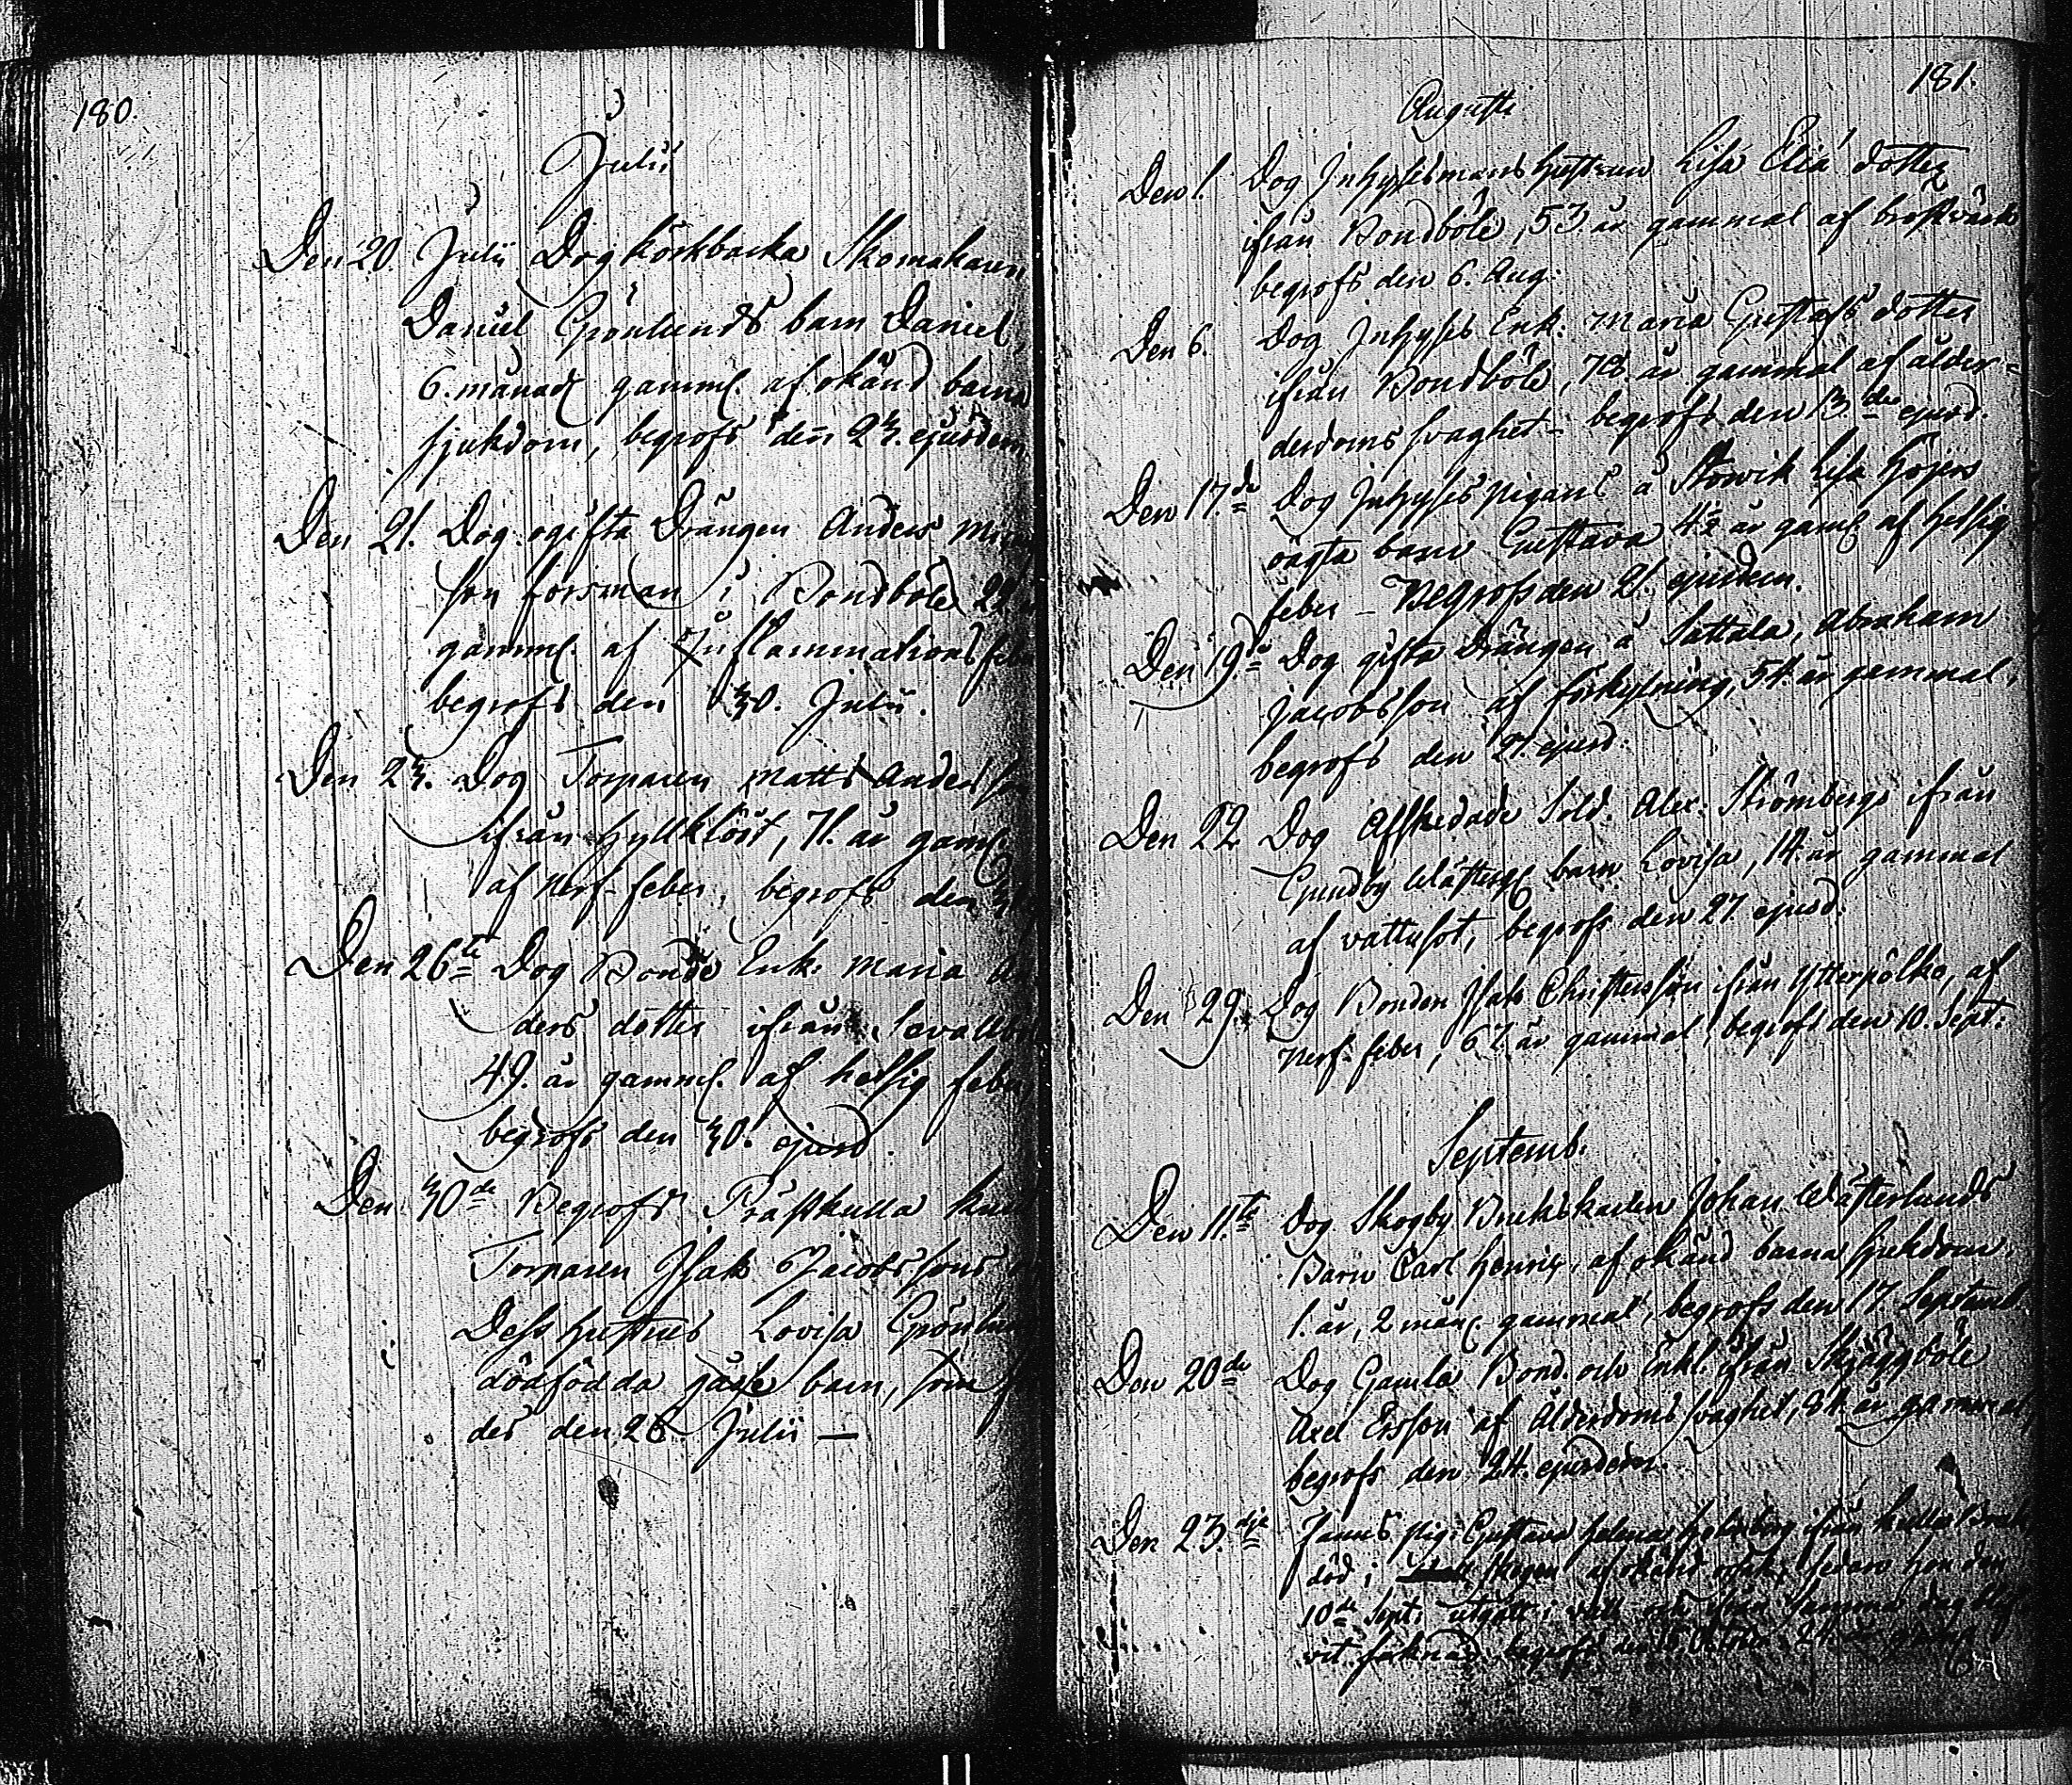 180.
Julii
Den 20. Julii Dog körkbacka Skomakaren
Daniel Grönlunds barn Daniel,
6. månad gamml. af okänd barna
sjukdom, begrofs den 23. ejusdem
Den 21. Dog ogifta Drängen Anders
son Forsman i Bondböle 22
gamml. af Inflammations feb
begrofs den 30. Julii.
Den 23. Dog Torparen Matts Anders
ifrån Gyllklöst, 71. år gaml.
af Nerf-feber, begrofs den
Den 26te Dog Bonde Enk. Maria An
ders dotter ifrån
49. år gamml. af hetsig feber
begrofs den 30. ejusd.
Den 30de Begrofs Prästkulla
Torparen Isaks Jacobssons
Dess hustrus Lovisa Grönlun
dödfödda barn, som
des den 26. Julii —
181.
Augusti
Den 1. Dog Inhysesmans hustrun Lisa Eliä dotter
ifrån Bondböle, 53 år gammal af bröstvärk
begrofs den 6. Aug:
Den 6. Dog Inhyses Enk: Maria Gustafs dotter
ifrån Bondböle, 78. år gammal af ålder-
derdoms svaghet - begrofs den 13de ejusd.
Den 17.de Dog Inhyses pigans å Storvik Lisa Höjers
oägta barn Gustava 4½ år gaml af hetsig
feber - Begrofs den 21. ejusdem.
Den 19.de Dog gifta Drängen å Sattala, Abraham
Jacobsson af förkylning, 54. år gammal,
begrofs den 27. ejusd.
Den 22 Dog Affskedade Sold. Alex: Strömbergs ifrån
Grundby barn Lovisa, 14. år gammal
af vattusot, begrofs den 27 ejusd.
Den 29. Dog Bonden Isak Christersson ifrån Ytterpölke, af
Nerf-feber, 67. år gammal, begrofs den 10. Sept:
Septemb.
Den 11.te Dog Skogby Brukskarlen Johan Wästerlunds
Barn Carl Henric, af okänd barna sjukdom,
1. år, 2 mån. gammal, begrofs den 17 Septemb
Den 20de Dog Gamla Bond. och Enkl. ifrån Skjäggböle
Axel Ersson af Ålderdoms svaghet, 84. år gammal,
begrofs den 24. ejusdem.
Den 23.dje Fanns pig. Gustava ifrån
död i skogen af okänd orsak, sedan hon den
10de Sept: utgått i vall och ifrån samma dag blif
vit saknad begrofs den October, 24. år gamml